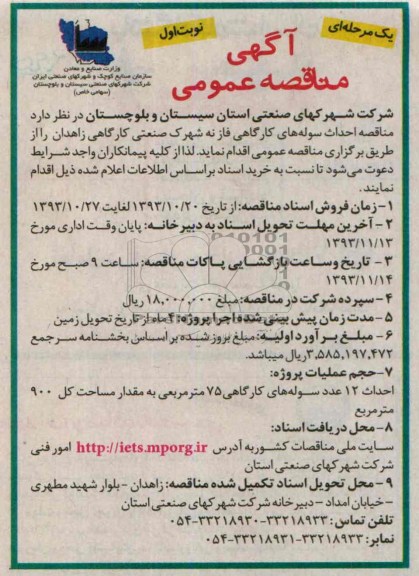 یک مرحله‌ای
نوبت اول
آگهی
مناقصه عمومی
وزارت صنایع و معادن
سازمان صنایع کوچک و شهرکهای صنعتی ایران
شرکت شهرکهای صنعتی سیستان و بلوچستان
(سهامی خاص)
شرکت شهرکهای صنعتی استان سیستان و بلوچستان در نظر دارد
مناقصه احداث سوله‌های کارگاهی فاز نه شهرک صنعتی کارگاهی زاهدان را از
طریق برگزاری مناقصه عمومی اقدام نماید. لذا از کلیه پیمانکاران واجد شرایط
دعوت می‌شود تا نسبت به خرید اسناد براساس اطلاعات اعلام شده ذیل اقدام
نمایند.
۱- زمان فروش اسناد مناقصه: از تاریخ ۱۳۹۳/۱۰/۲۰ لغایت ۱۳۹۳/۱۰/۲۷
۲- آخرین مهلت تحویل اسناد به دبیرخانه: پایان وقت اداری مورخ
۱۳۹۳/۱۱/۱۳
۳- تاریخ وساعت بازگشایی پاکات مناقصه: ساعت ۹ صبح مورخ
۱۳۹۳/۱۱/۱۴
۴- سپرده شرکت در مناقصه: مبلغ ۱۸,۰۰۰,۰۰۰ ریال
۵- مدت زمان پیش بینی شده اجرا پروژه: ۴ ماه از تاریخ تحویل زمین
۶- مبلغ برآورد اولیه: مبلغ بروز شده بر اساس بخشنامه سرجمع
۳,۵۸۵,۱۹۷,۴۷۲ ریال میباشد.
۷- حجم عملیات پروژه:
احداث ۱۲ عدد سوله‌های کارگاهی ۷۵ مترمربعی به مقدار مساحت کل ۹۰۰
مترمربع
۸- محل دریافت اسناد:
سایت ملی مناقصات کشور به آدرس http://iets.mporg.ir امور فنی
شرکت شهرکهای صنعتی استان
۹- محل تحویل اسناد تکمیل شده مناقصه: زاهدان - بلوار شهید مطهری
- خیابان امداد - دبیرخانه شرکت شهرکهای صنعتی استان
تلفن تماس: ۳۳۲۱۸۹۳۳-۳۳۲۱۸۹۳۰-۰۵۴
نمابر: ۳۳۲۱۸۹۳۳-۳۳۲۱۸۹۳۱-۰۵۴